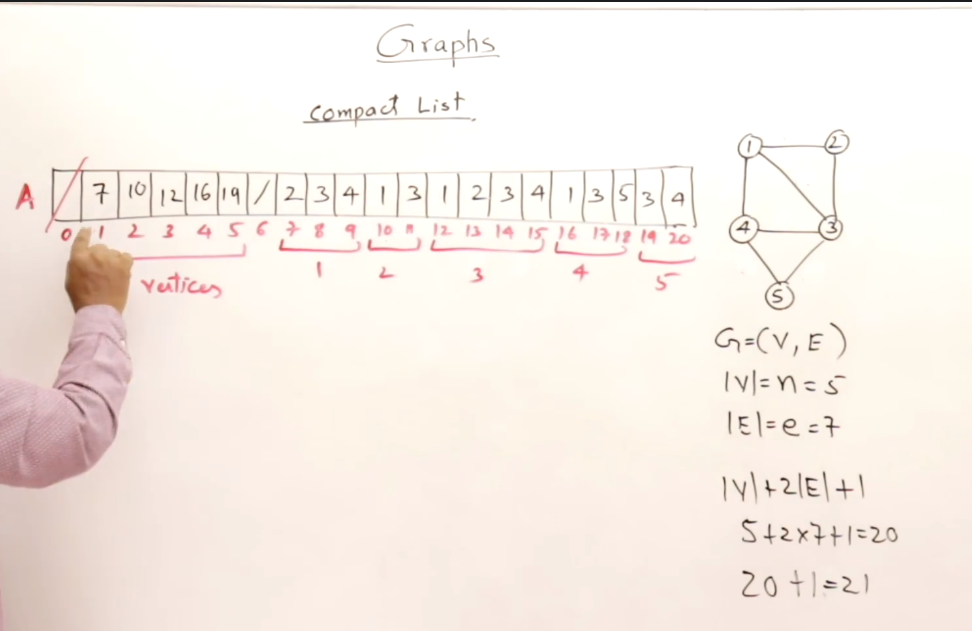 Graphs
Compact List.
A / 7 10 12 16 19 / 2 3 4 1 3 1 2 3 4 1 3 5 3 4
0 1 2 3 4 5 6 7 8 9 10 11 12 13 14 15 16 17 18 19 20
vertices 1 2 3 4 5
1 2
4 3
5
G=(V,E)
|V|=n=5
|E|=e=7
|V|+2|E|+1
5+2×7+1=20
20+1=21